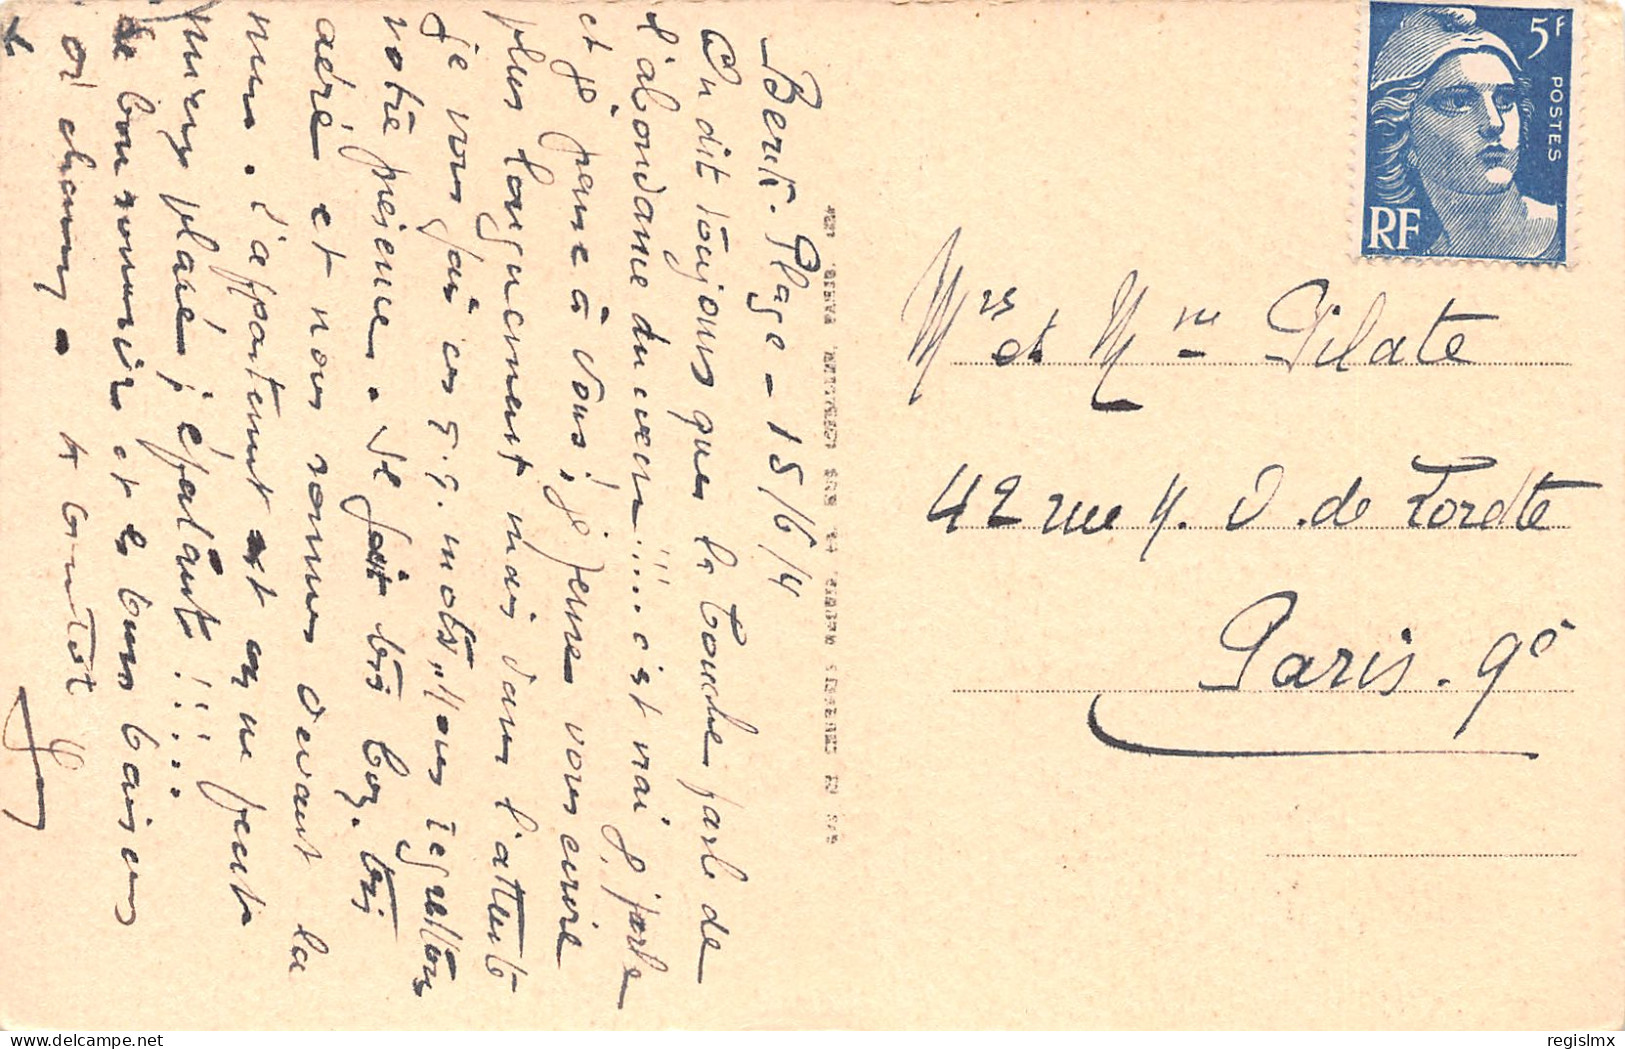 Berck-Plage - 15/6/4
On dit toujours que la bouche parle de
l'abondance du cœur!!!.. c'est vrai je parle
et je pense à vous; je pense vous écrire
plus longuement mais dans l'attente
je vous fais ces 5.9. mots, nous regrettons
votre présence. Il fait très bon, très
aéré et nous sommes devant la
mer. L'appartement est on ne peut
mieux placé; épatant!!!..
Le bon souvenir et les bons baisers
A bientôt
Mrs et Mme Pilate
42 rue N. D. de Lorette
Paris. 9è
5F
POSTES
RF
regislmx